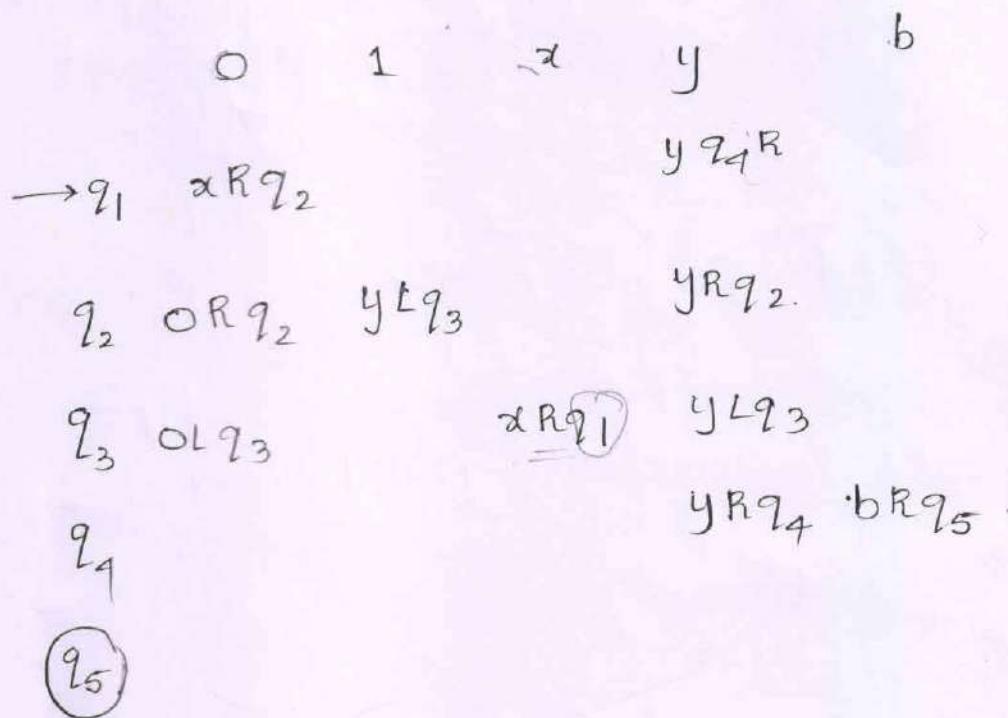 0 1 x y b
→ q1 xRq2 y q4 R
q2 0Rq2 yLq3 yRq2.
q3 0Lq3 xRq1 yLq3
q4 yRq4 bRq5
q5